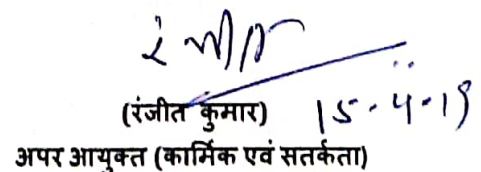 रंजीत
(रंजीत कुमार) 15-4-19
अपर आयुक्त (कार्मिक एवं सतर्कता)